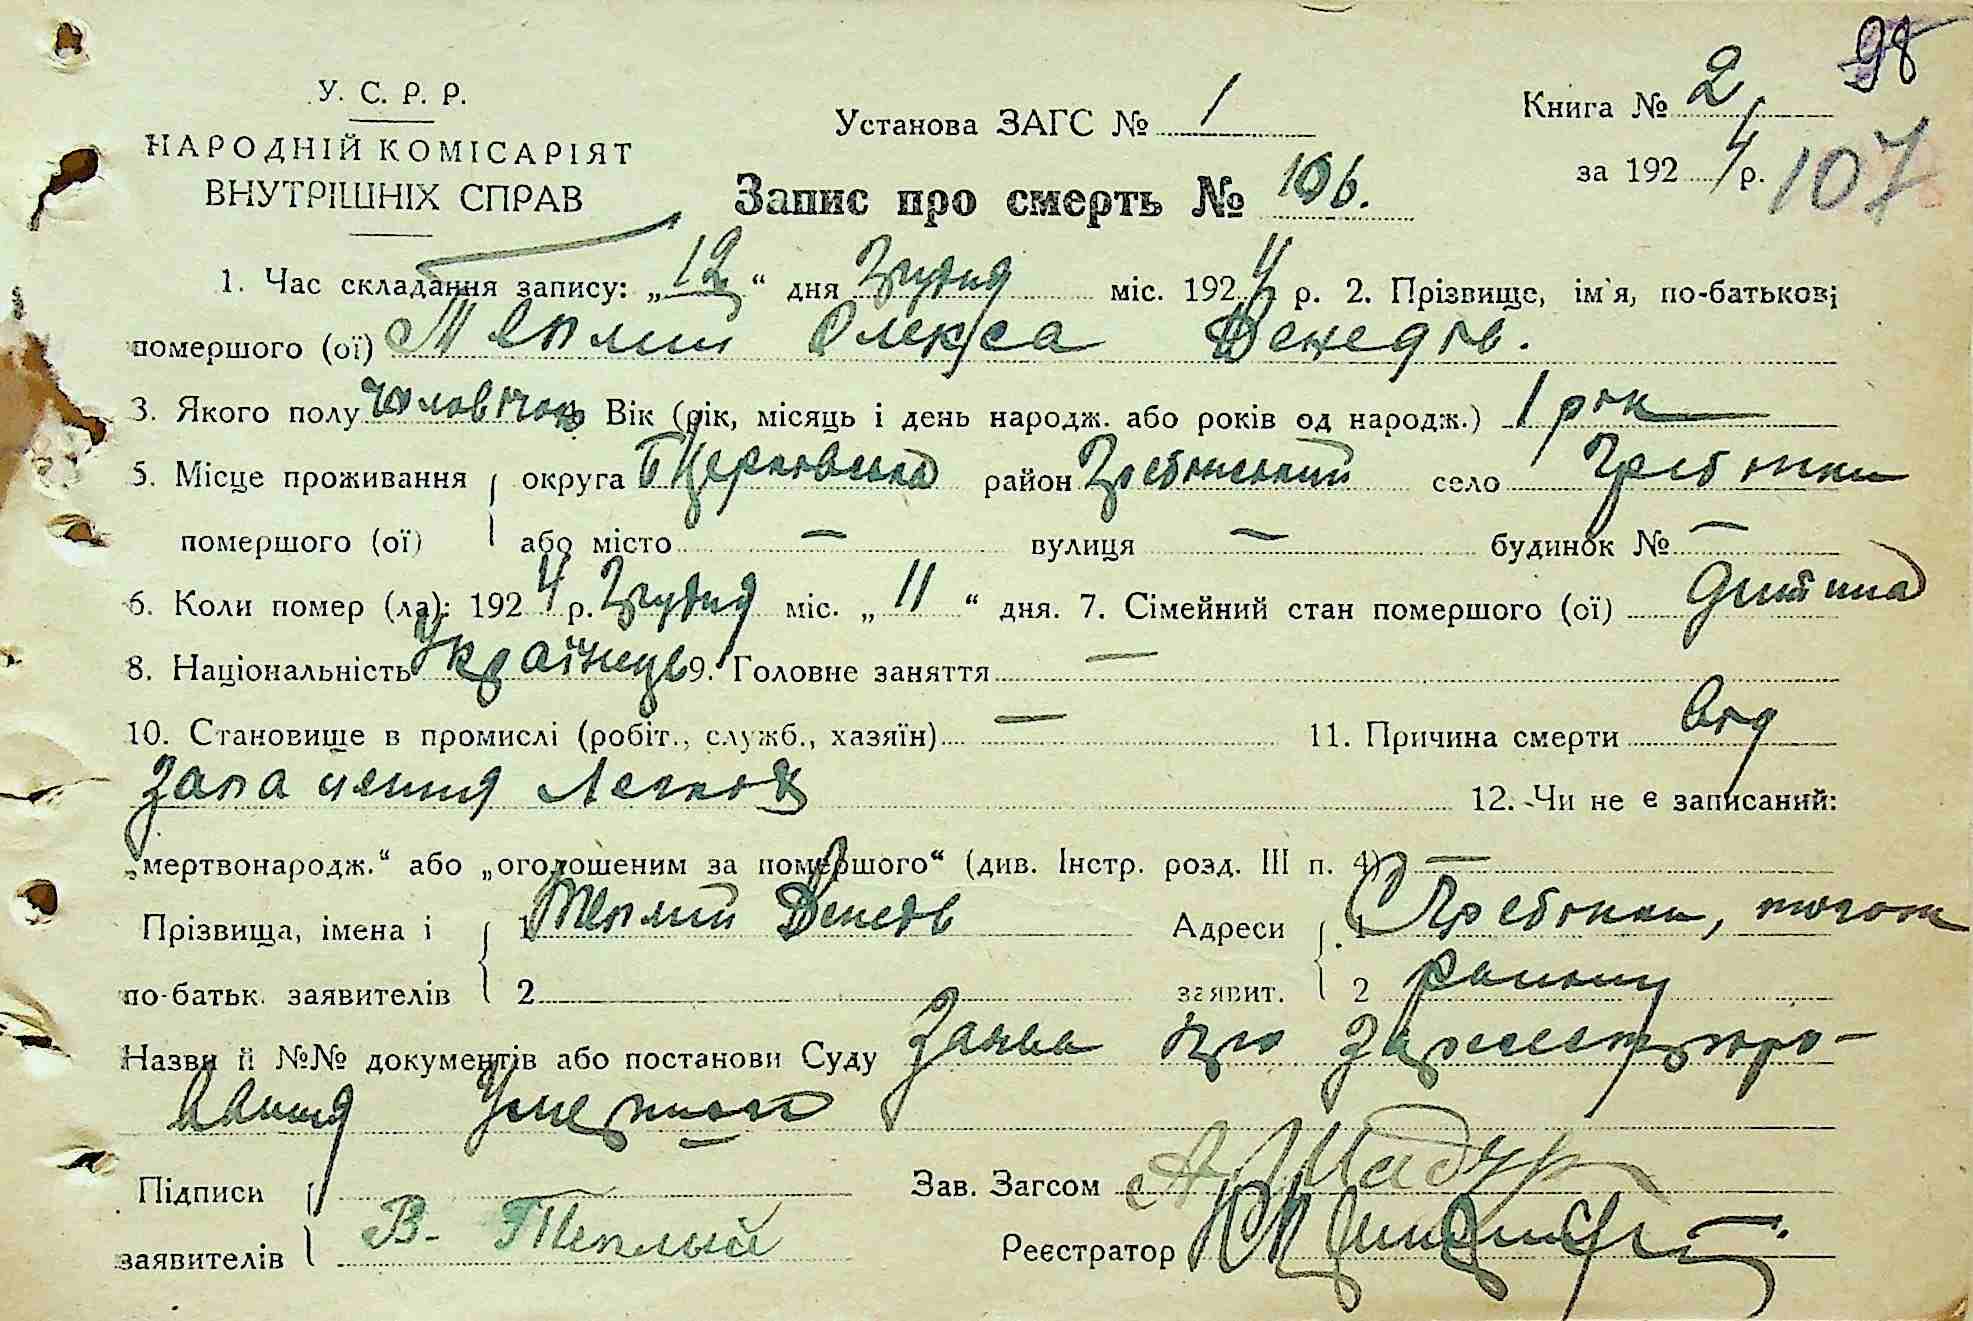 98
У. С. Р. Р.
Книга № 2
Установа ЗАГС № 1
НАРОДНІЙ КОМІСАРІЯТ
за 1924 р. 107
ВНУТРІШНІХ СПРАВ
Запис про смерть № 106.
1. Час складання запису: „12“ дня Грудня міс. 1924 р. 2. Прізвище, ім'я, по-батькові
помершого (ої) Теплий Олекса
3. Якого полу чоловічого Вік (рік, місяць і день народж. або років од народж.) 1 рік
5. Місце проживання округа Б Церковська район Гребінський село Гребінки
помершого (ої) або місто — вулиця — будинок № —
6. Коли помер (ла): 1924 р. Грудня міс. „11“ дня. 7. Сімейний стан помершого (ої) дитина
8. Національність Українець 9. Головне заняття —
10. Становище в промислі (робіт., служб., хазяїн) — 11. Причина смерти від
запалення легких
12. Чи не є записаний:
„мертвонародж.“ або „оголошеним за помершого“ (див. Інстр. розд. III п. 4) —
Прізвища, імена і 1 Теплий Адреси 1 С Гребінки, того ж
по-батьк. заявителів 2 заявит. 2 району
Назви й №№ документів або постанови Суду Заява про зареєстро-
вання
Підписи Зав. Загсом
заявителів В. Теплый Реєстратор